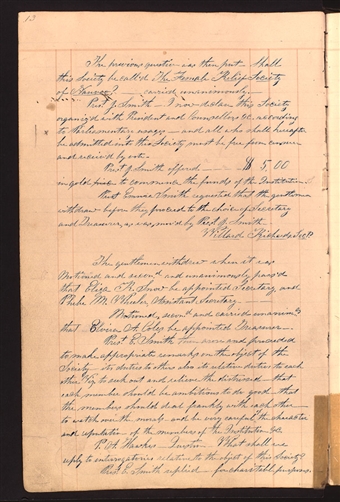 13
The previous question was then put — Shall
this Society be called The Female Relief Society
of Nauvoo? — carried unanimously.
Prest. J. Smith — I now declare this Society
organiz'd with President and Counsellors &c. according
to Parliamentary usages — and all who shall hereafter
be admitted into this Society must be free from censure
and receiv'd by vote.
Prest. J. Smith offered — $ 5,00
in gold piece to commence the funds of the Institution.
Prest. Emma Smith requested that the gentlemen
withdraw before they proceed to the choice of Secretary
and Treasurer, as was mov'd by Prest. J. Smith.
Willard Richards, Sec'y
The gentlemen withdrew when it was
Motioned and second and unanimously pass'd
that Eliza R. Snow be appointed Secretary, and
Phebe M. Wheeler, Assistant Secretary.
Motioned, second and carried unanimously
that Elvira A. Coles be appointed Treasurer.
Prest. E. Smith then arose and proceeded
to make appropriate remarks on the object of the
Society — its duties to others also its relative duties to each
other Viz. to seek out and relieve the distressed — that
each member should be ambitious to do good — that
the members should deal frankly with each other —
to watch over the morals — and be very careful of the character
and reputation — of the members of the Institution &c.
P. A. Hawkes — Question — What shall we
reply to interrogatories relative to the object of this Society?
Prest. E. Smith replied — for charitable purposes.